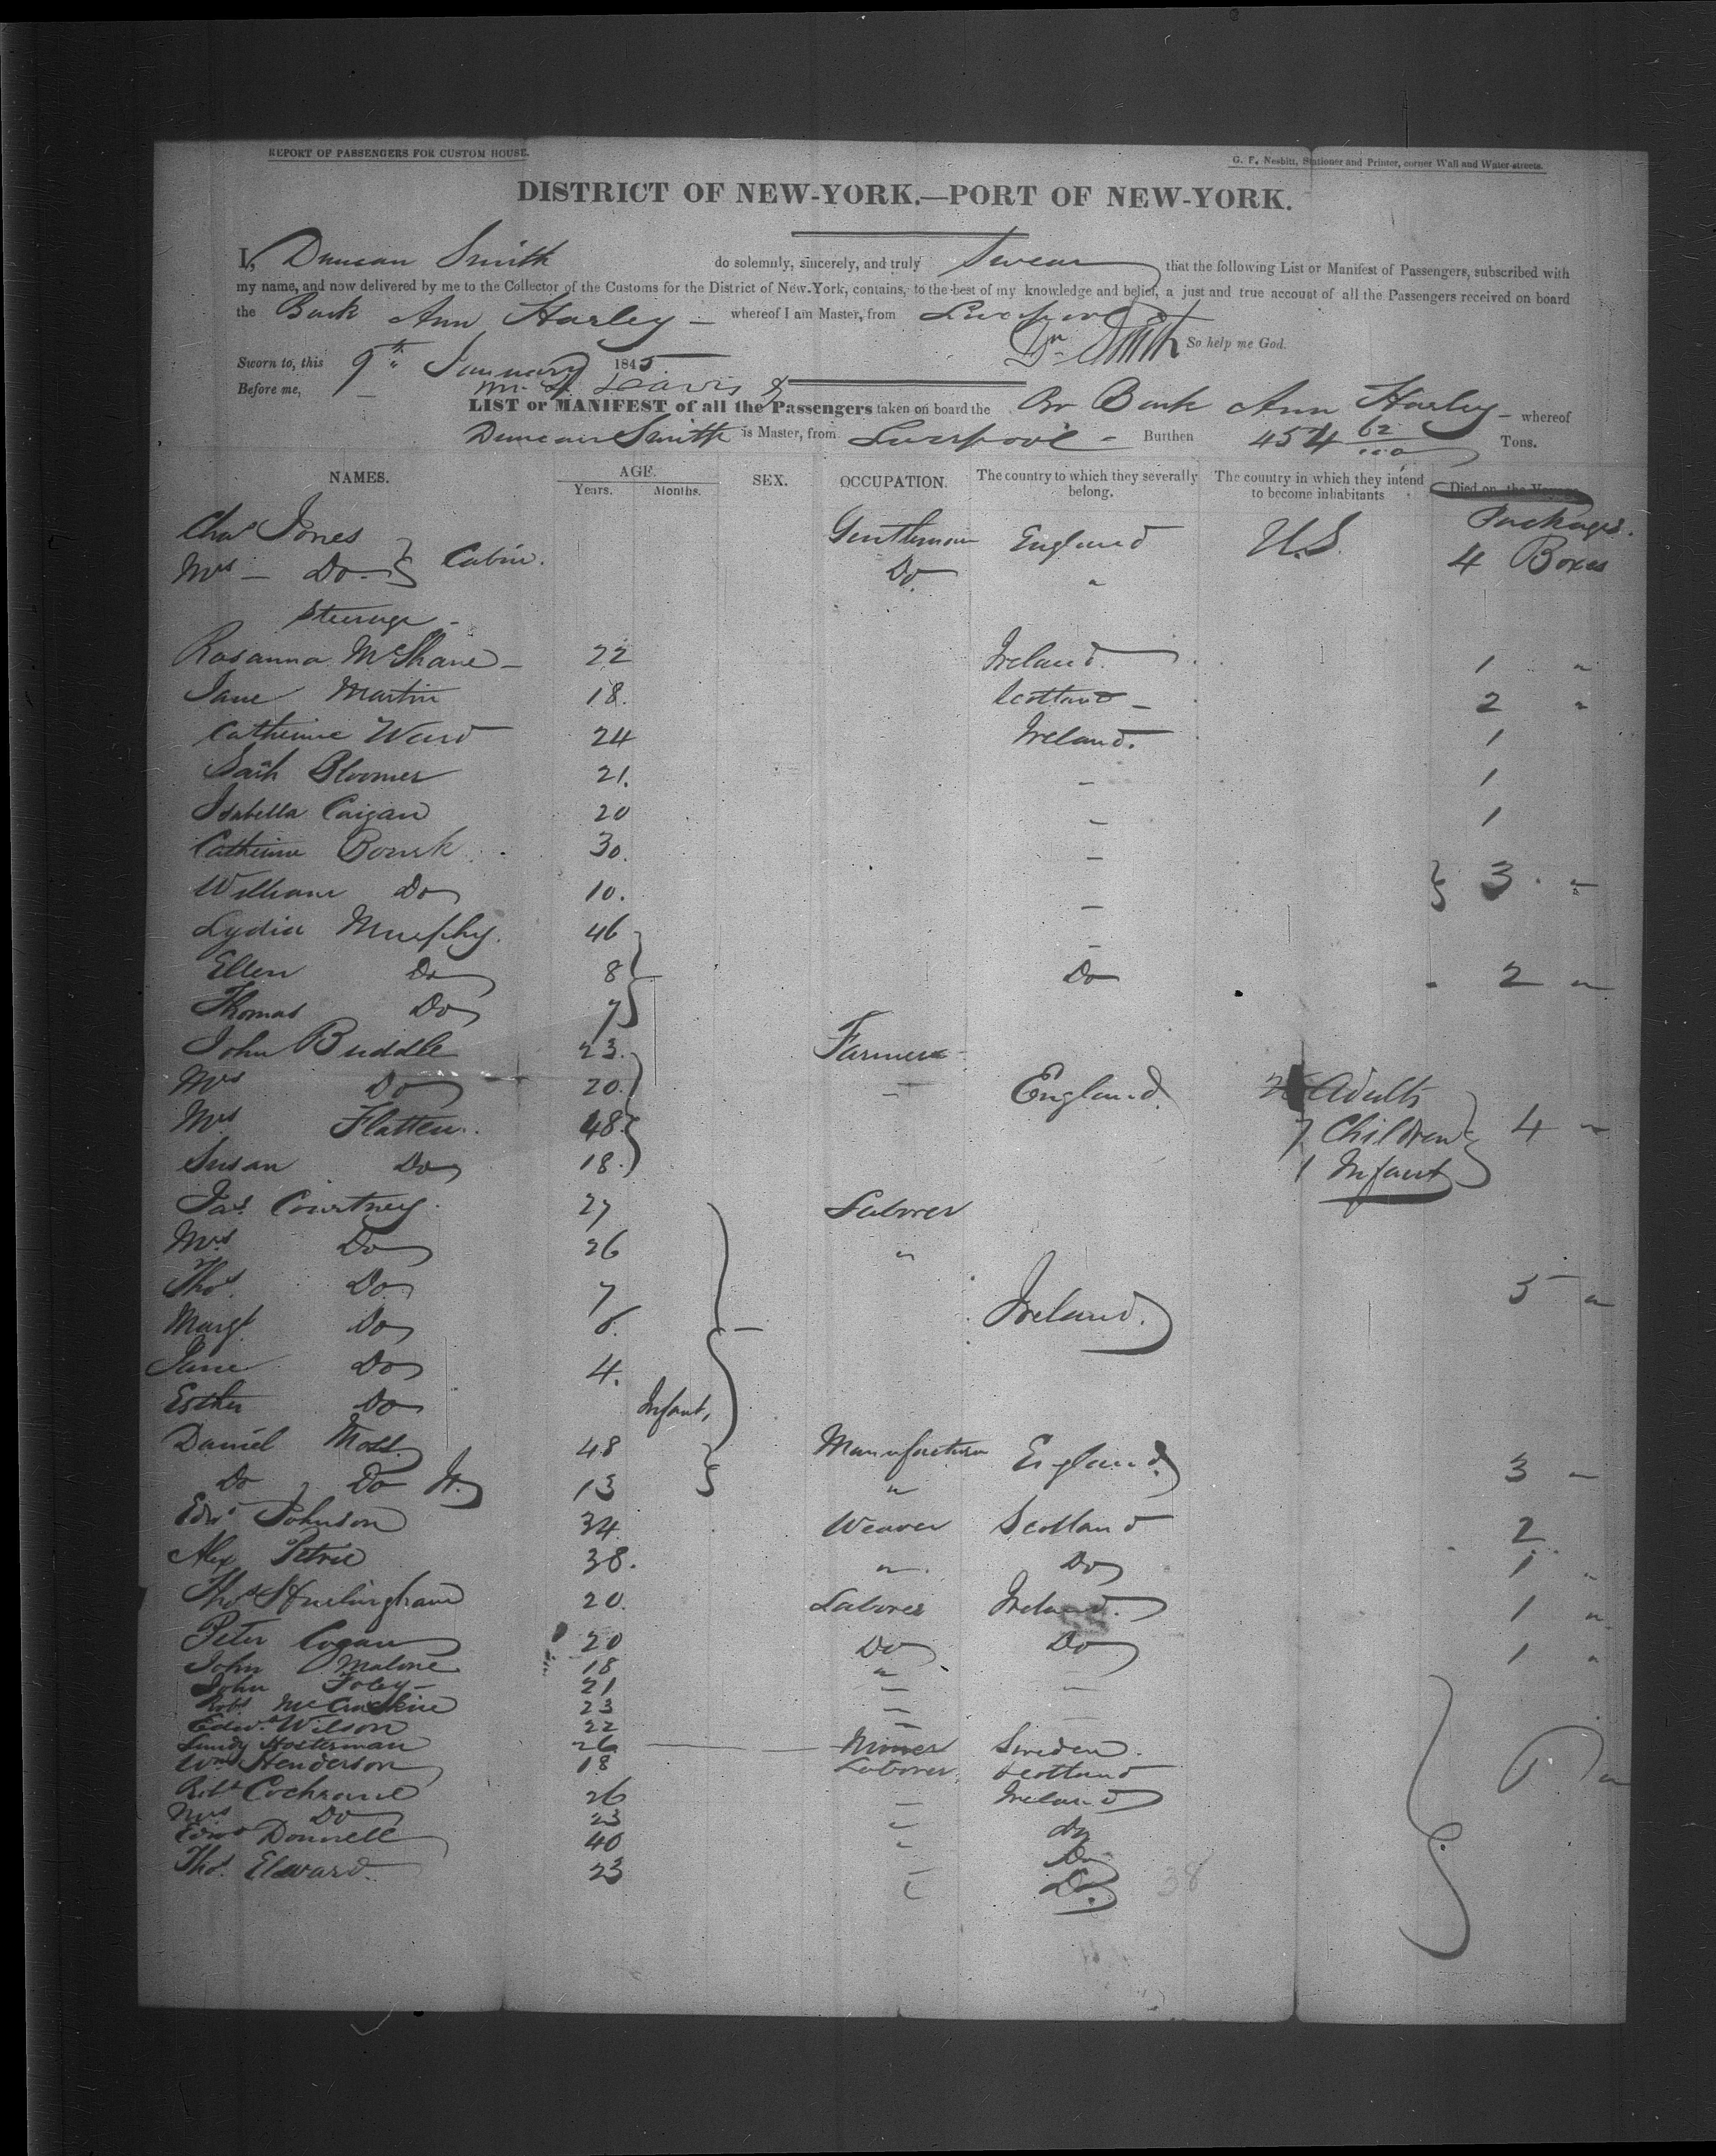 REPORT OF PASSENGERS FOR CUSTOM HOUSE.
G. F. Nesbitt, Stationer and Printer, corner Wall and Water-streets.
DISTRICT OF NEW-YORK.—PORT OF NEW-YORK.
I, Duncan Smith do solemnly, sincerely, and truly Swear that the following List or Manifest of Passengers, subscribed with
my name, and now delivered by me to the Collector of the Customs for the District of New-York, contains, to the best of my knowledge and belief, a just and true account of all the Passengers received on board
the Bark Ann Harley — whereof I am Master, from Liverpool
Dn Smith So help me God.
Sworn to, this 9th January 1845
Before me, Davis
LIST or MANIFEST of all the Passengers taken on board the Br Bark Ann Harley — whereof
Duncan Smith is Master, from Liverpool — Burthen 454 62/100 Tons.
NAMES. AGE. Years. Months. SEX. OCCUPATION. The country to which they severally belong. The country in which they intend to become inhabitants Died on the Voyage
Packages.
Chas Jones Gentleman England U.S. 4 Boxes
Mrs — Do. } Cabin. Do "
Steerage —
Rosanna McShane — 22 Ireland. 1 "
Jane Martin 18. Scotland — 2 "
Catherine Ward 24 Ireland. 1
Sarh Bloomer 21. — 1
Isabella 20 — 1
Catherine Bourk 30. —
William Do 10. — } 3 "
Lydia Murphy. 46 —
Ellen Do 8 Do 2 "
Thomas Do 7
John Buddle 23. Farmer
Mrs Do 20. " England. Adults
Mrs Flatten. 48. 7 Children } 4 "
Susan Do 18. 1 Infant
Jas. Courtney. 27 Laborer
Mrs Do 26 "
Thos. Do. 7 Ireland. 5 "
Margt. Do 6.
Jane Do 4.
Esther Do Infant,
Daniel Moss 48 Manufacturer England. 3 "
Do Do Jr. 13 "
Edwd Johnson 34 Weaver Scotland 2
Alex Petrie 38. " Do 1 "
Thos 20. Laborer Ireland. 1 "
Peter Cogan 20 Do Do 1 "
John Malone 18 "
John Foley — 21 — —
Robt 23 —
Edwd. Wilson 22 —
Hosterman 26 Miner Sweden.
Wm Henderson 18 Laborer, Scotland
Robt Cochrane 26 — Ireland
Mrs Do 23 " do
Edwd Donnell 40 " Do
Thos. Elward. 23 " Do. 38